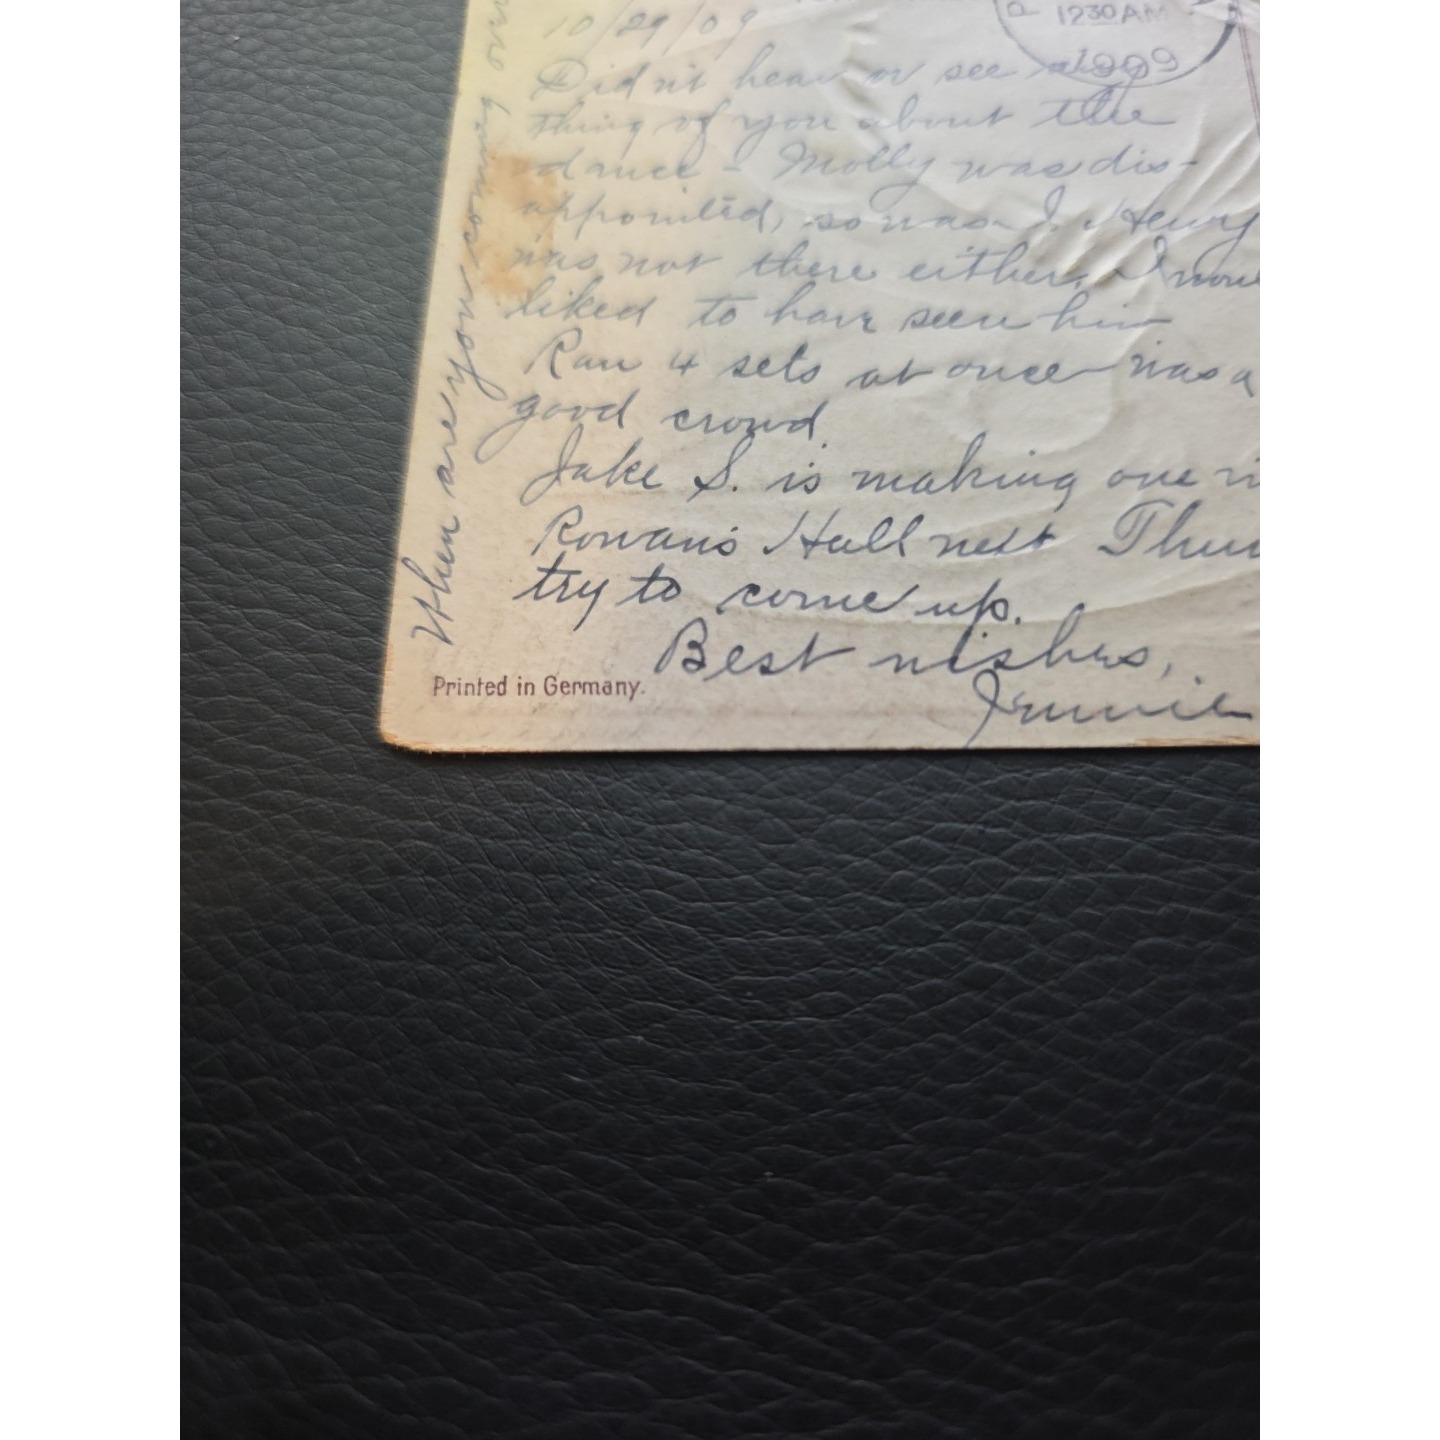 1230AM
1909
10/29/09
Didn't hear or see any
thing of you about the
dance - Molly was dis-
appointed, so was I. Henry
was not there either. I wou
liked to have seen him
Ran 4 sets at once was a
good crowd.
Jake S. is making one in
Rowan's Hall next Thur
try to come up.
Best wishes,
When are you coming
Printed in Germany.